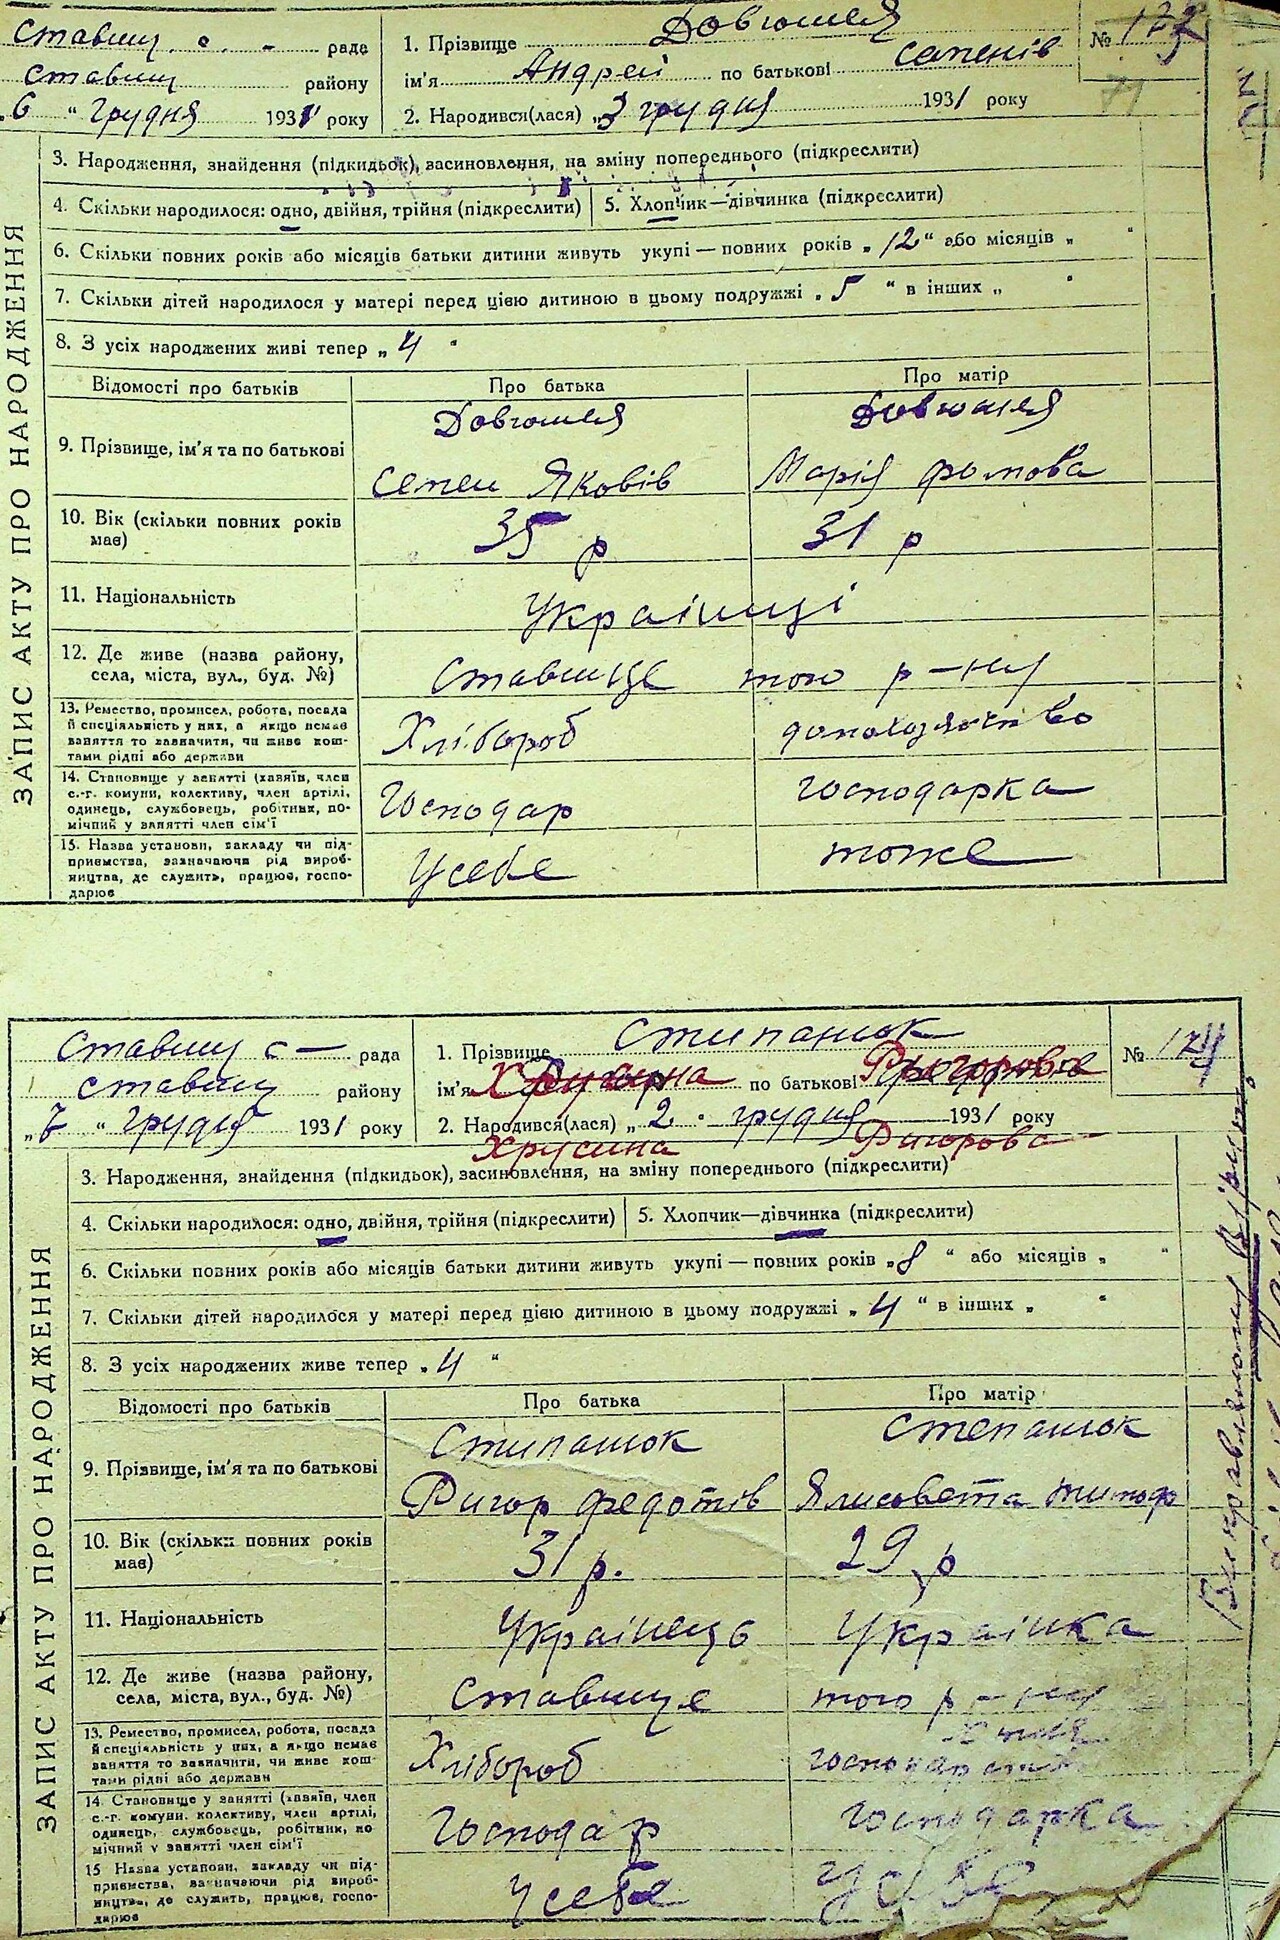 Ставищ. с. – раде
Ставищ району
„6 “ Грудня 1931 року
1. Прізвище
ім'я Андрей по батькові Семенів
2. Народився(лася) „3 грудня 1931 року
№
71
ЗАПИС АКТУ ПРО НАРОДЖЕННЯ
3. Народження, знайдення (підкидьок), засиновлення, на зміну попереднього (підкреслити)
4. Скільки народилося: одно, двійня, трійня (підкреслити) 5. Хлопчик—дівчинка (підкреслити)
6. Скільки повних років або місяців батьки дитини живуть укупі — повних років „ 12 “ або місяців „ “
7. Скільки дітей народилося у матері перед цією дитиною в цьому подружжі „ 5 “ в інших „ “
8. З усіх народжених живі тепер „ 4 “
Відомості про батьків Про батька Про матір
9. Прізвище, ім'я та по батькові
Семен Яковів Марія Фомова
10. Вік (скільки повних років має) 35 р 31 р
11. Національність Українці
12. Де живе (назва району, села, міста, вул., буд. №) Ставище того р–ну
13. Ремество, промисел, робота, посада й спеціяльність у них, а якщо немає заняття то зазначити, чи живе коштами рідні або держави Хлібороб домохозяйство
14. Становище у занятті (хазяїн, член с.-г. комуни, колективу, член артілі, одинець, службовець, робітник, помічний у занятті член сім'ї Господар господарка
15. Назва установи, закладу чи підприємства, зазначаючи рід виробництва, де служить, працює, господарює У себе тоже
Ставищ с – рада
Ставищ району
„7 “ грудня 1931 року
1. Прізвище Степанюк
ім'я Хрусина по батькові Ригорова
2. Народився(лася) „ 2 “ грудня 1931 року
Хрусина Ригорова
№
ЗАПИС АКТУ ПРО НАРОДЖЕННЯ
3. Народження, знайдення (підкидьок), засиновлення, на зміну попереднього (підкреслити)
4. Скільки народилося: одно, двійня, трійня (підкреслити) 5. Хлопчик—дівчинка (підкреслити)
6. Скільки повних років або місяців батьки дитини живуть укупі — повних років „ 8 “ або місяців „ “
7. Скільки дітей народилося у матері перед цією дитиною в цьому подружжі „ 4 “ в інших „ “
8. З усіх народжених живе тепер „ 4 “
Відомості про батьків Про батька Про матір
9. Прізвище, ім'я та по батькові Стипанюк Степанюк
Ригор Федотів Ялисовета Тимоф
10. Вік (скільки повних років має) 31 р. 29 р
11. Національність Українець Українка
12. Де живе (назва району, села, міста, вул., буд. №) Ставище того р–ну
13. Ремество, промисел, робота, посада й спеціяльність у них, а якщо немає заняття то зазначити, чи живе коштами рідні або держави Хлібороб
14. Становище у занятті (хазяїн, член с.-г. комуни, колективу, член артілі, одинець, службовець, робітник, помічний у занятті член сім'ї Господар Господарка
15 Назва установи, закладу чи підприємства, зазначаючи рід виробництва, де служить, працює, господарює У себе У себе
Виправленому вірить.